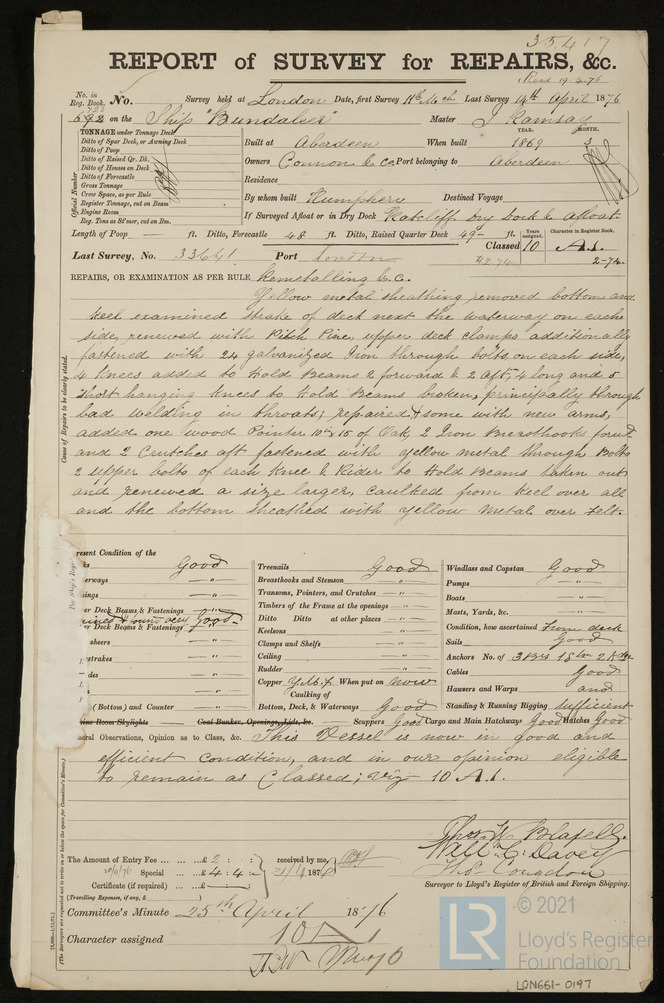 35,417
REPORT of SURVEY for REPAIRS, &c.
Recd 19.4.76
No. in Reg. Book. No. Survey held at London Date, first Survey 11th Mch Last Survey 14th April 1876
692 on the Ship "Bundaleer" Master J Ramsay
TONNAGE under Tonnage Deck
Ditto of Spar Deck, or Awning Deck
Ditto of Poop
Ditto of Raised Qr. Dk.
Ditto of Houses on Deck
Ditto of Forecastle
Gross Tonnage
Crew Space, as per Rule
Register Tonnage, cut on Beam
Engine Room
Reg. Tons as St'mer, cut on Bm.
Official Number
YEAR. MONTH.
Built at Aberdeen When built 1869 3
Owners Connon & Co. Port belonging to Aberdeen
Residence
By whom built Humphery Destined Voyage
If Surveyed Afloat or in Dry Dock Ratcliff Dry Dock & Afloat.
Length of Poop — ft. Ditto, Forecastle 48 ft. Ditto, Raised Quarter Deck 49 ft.
Years assigned. Character in Register Book.
Classed 10 A.1.
Last Survey, No. 33641 Port London 2-74.
REPAIRS, OR EXAMINATION AS PER RULE Remetalling &.C.
Yellow metal sheathing removed bottom and
keel examined strake of deck next the waterway on each
side, renewed with Pitch Pine, upper deck clamps additionally
fastened with 24 galvanized Iron through bolts on each side,
4 Knees added to Hold Beams 2 forward & 2 aft, 4 long and 5
short hanging knees to Hold Beams broken, principally through
bad welding in throats; repaired & some with new arms,
added one wood Pointer 10 x 15 of Oak, 2 Iron Breasthooks forwd
and 2 Crutches aft fastened with yellow metal through Bolts
2 upper bolts of each Knee & Rider to Hold Beams taken out
and renewed a size larger, caulked from Keel over all
and the bottom sheathed with yellow metal over felt.
Cause of Repairs to be clearly stated.
resent Condition of the
ks Good
erways "
ings "
er Deck Beams & Fastenings "
ined & found very Good
er Deck Beams & Fastenings
sheers "
strakes "
des "
"
(Bottom) and Counter "
Treenails Good
Breasthooks and Stemson "
Transoms, Pointers, and Crutches "
Timbers of the Frame at the openings "
Ditto Ditto at other places "
Keelsons "
Clamps and Shelfs "
Ceiling "
Rudder "
Copper Y.M.F. When put on Now
Caulking of
Bottom, Deck, & Waterways Good
Windlass and Capstan Good
Pumps "
Boats "
Masts, Yards, &c. "
Condition, how ascertained From deck
Sails Good
Anchors No. of 3 Brs 1 Sm 2 Kdgs
Cables Good
Hawsers and Warps and
Standing & Running Rigging Sufficient
ine Room Skylights Coal Bunker, Openings, Lids, &c. Scuppers Good Cargo and Main Hatchways Good Hatches Good
eral Observations, Opinion as to Class, &c. This Vessel is now in good and
efficient condition, and in our opinion eligible
to remain as Classed; viz 10 A.1.
Thos W Blafell.
Will C. Davey
Thos Congdon
Surveyor to Lloyd's Register of British and Foreign Shipping.
The Amount of Entry Fee ... ... ... £ 2 : : received by me,
Special ... ... £ 4 : 4 : 1876
Certificate (if required) ... £
(Travelling Expenses, if any, £ )
Committee's Minute 25th April 1876
Character assigned 10 A1
(The Surveyors are requested not to write on or below the space for Committee's Minute.)
LR © 2021
Lloyd's Register
Foundation
LON661-0197